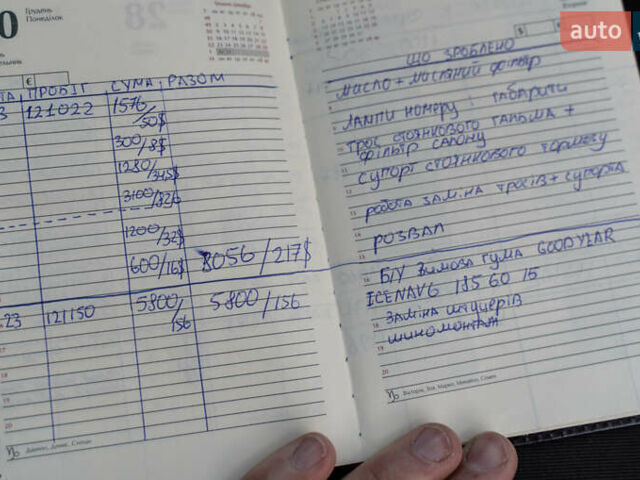 Грудень
Понеділок
€
ПРОБІГ СУМА РАЗОМ
3 121022 1576/50$
300/8$
1280/34,5$
3100/82$
1200/32$
600/16$ 8056/217$
23 121150 5800/156 5800/156
Данило, Денис, Степан
auto
$
ЩО ЗРОБЛЕНО
МАСЛО + МАСЛЯНИЙ ФІЛЬТР
ЛАМПИ НОМЕРУ і ГАБАРИТИ
ТРОС СТОЯНКОВОГО ГАЛЬМА +
ФІЛЬТР САЛОНУ
СУПОРТ СТОЯНКОВОГО ТОРМОЗУ
РОБОТА ЗАМІНА ТРОСІВ + СУПОРТА
РОЗВАЛ
Б/У ЗИМОВА ГУМА GOODYEAR
ICENAVG 185 60 15
ЗАМІНА ШТУЦЕРІВ
ШИНОМОНТАЖ